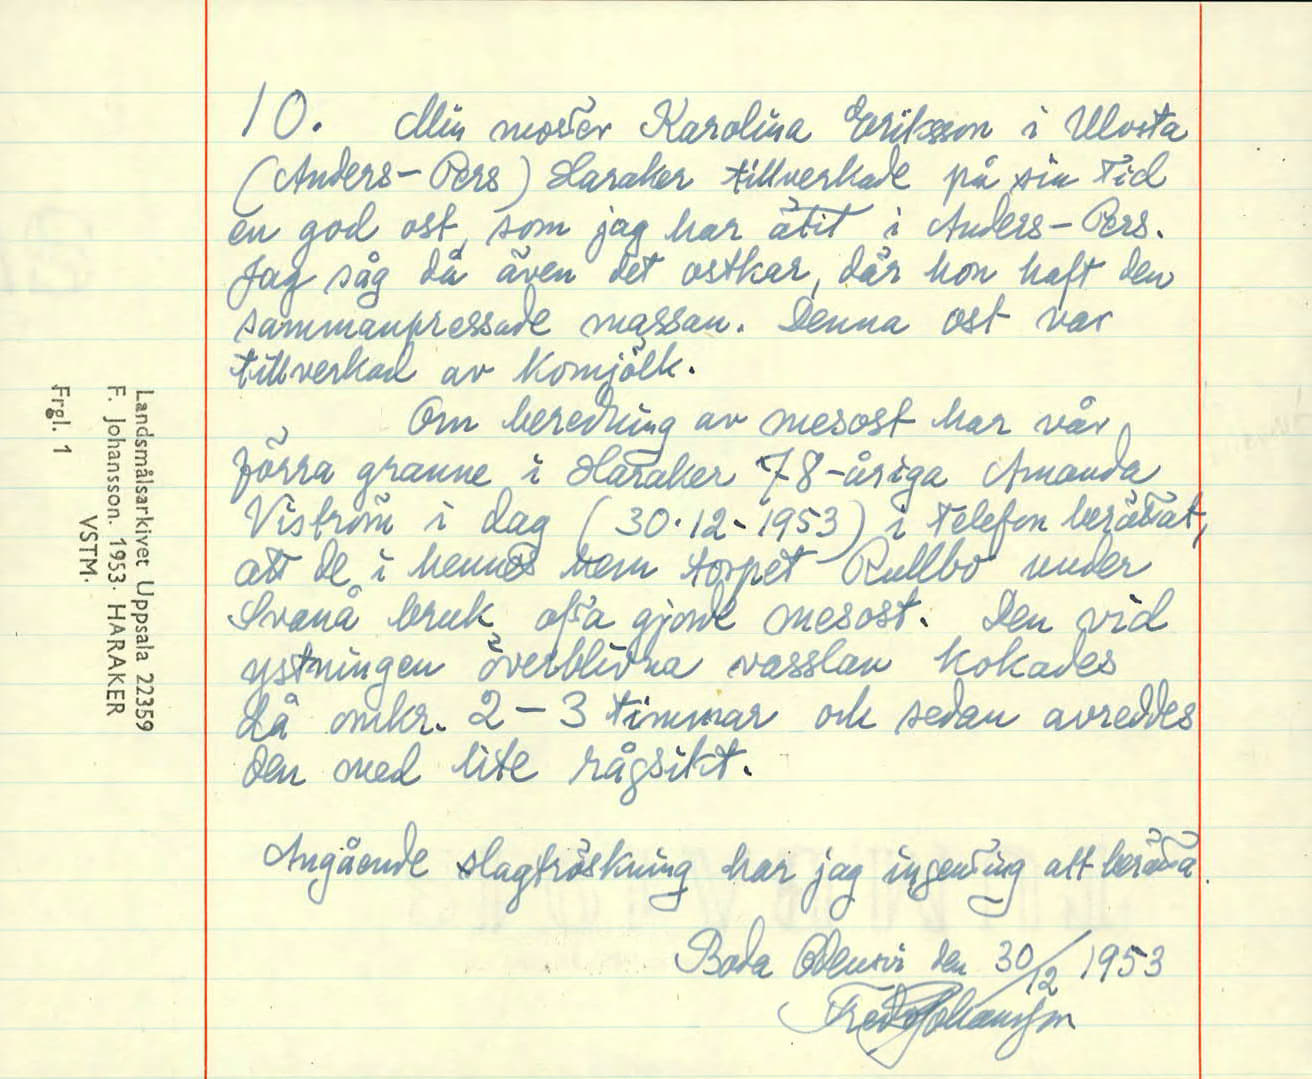 10. Min moster Karolina Eriksson i Ulvsta
(Anders-Pers) Haraker tillverkade på sin tid
en god ost, som jag har ätit i Anders-Pers.
Jag såg då även det ostkar, där hon haft den
sammanpressade massan. Denna ost var
tillverkad av komjölk.
Om beredning av mesost har vår
förra granne i Haraker 78-åriga Amanda
Viström i dag (30.12-1953) i telefon berättat,
att de i hennes hem torpet Rullbo under
Svanå bruk ofta gjorde mesost. Den vid
ystningen överblivna vasslan kokades
då omkr. 2-3 timmar och sedan avreddes
den med lite rågsikt.
Angående slagtröskning har jag ingenting att berätta.
Boda Odensvi den 30/12 1953
Fred Johansson
Landsmålsarkivet Uppsala 22359
F. Johansson. 1953. HARAKER
VSTM.
Frgl. 1